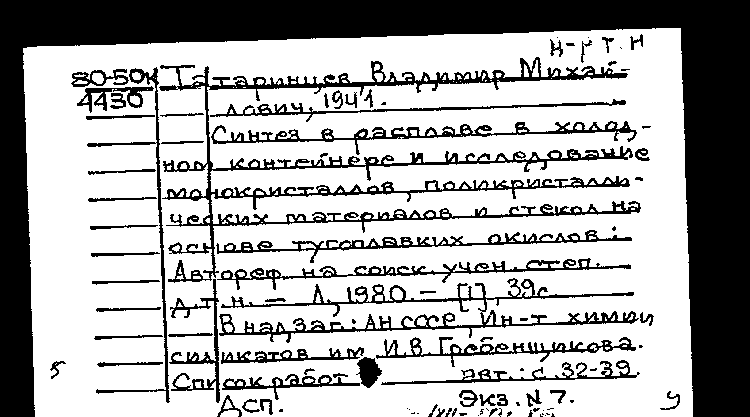 80-50к Татаринцев, Владимир Михай-
4430 лович, 1941.
Синтез в расплаве в холод-
ном контейнере и исследование
монокристаллов, поликристалли-
ческих материалов и стекол на
основе тугоплавких окислов:
Автореф. на соиск. учен. степ.
д.т.н. — Л., 1980. — [1], 39с
В надзаг.: АН СССР, Ин-т химии
силикатов им. И.В. Гребенщикова.
Список работ авт.: с. 32-39.
Дсп. Экз. N 7.